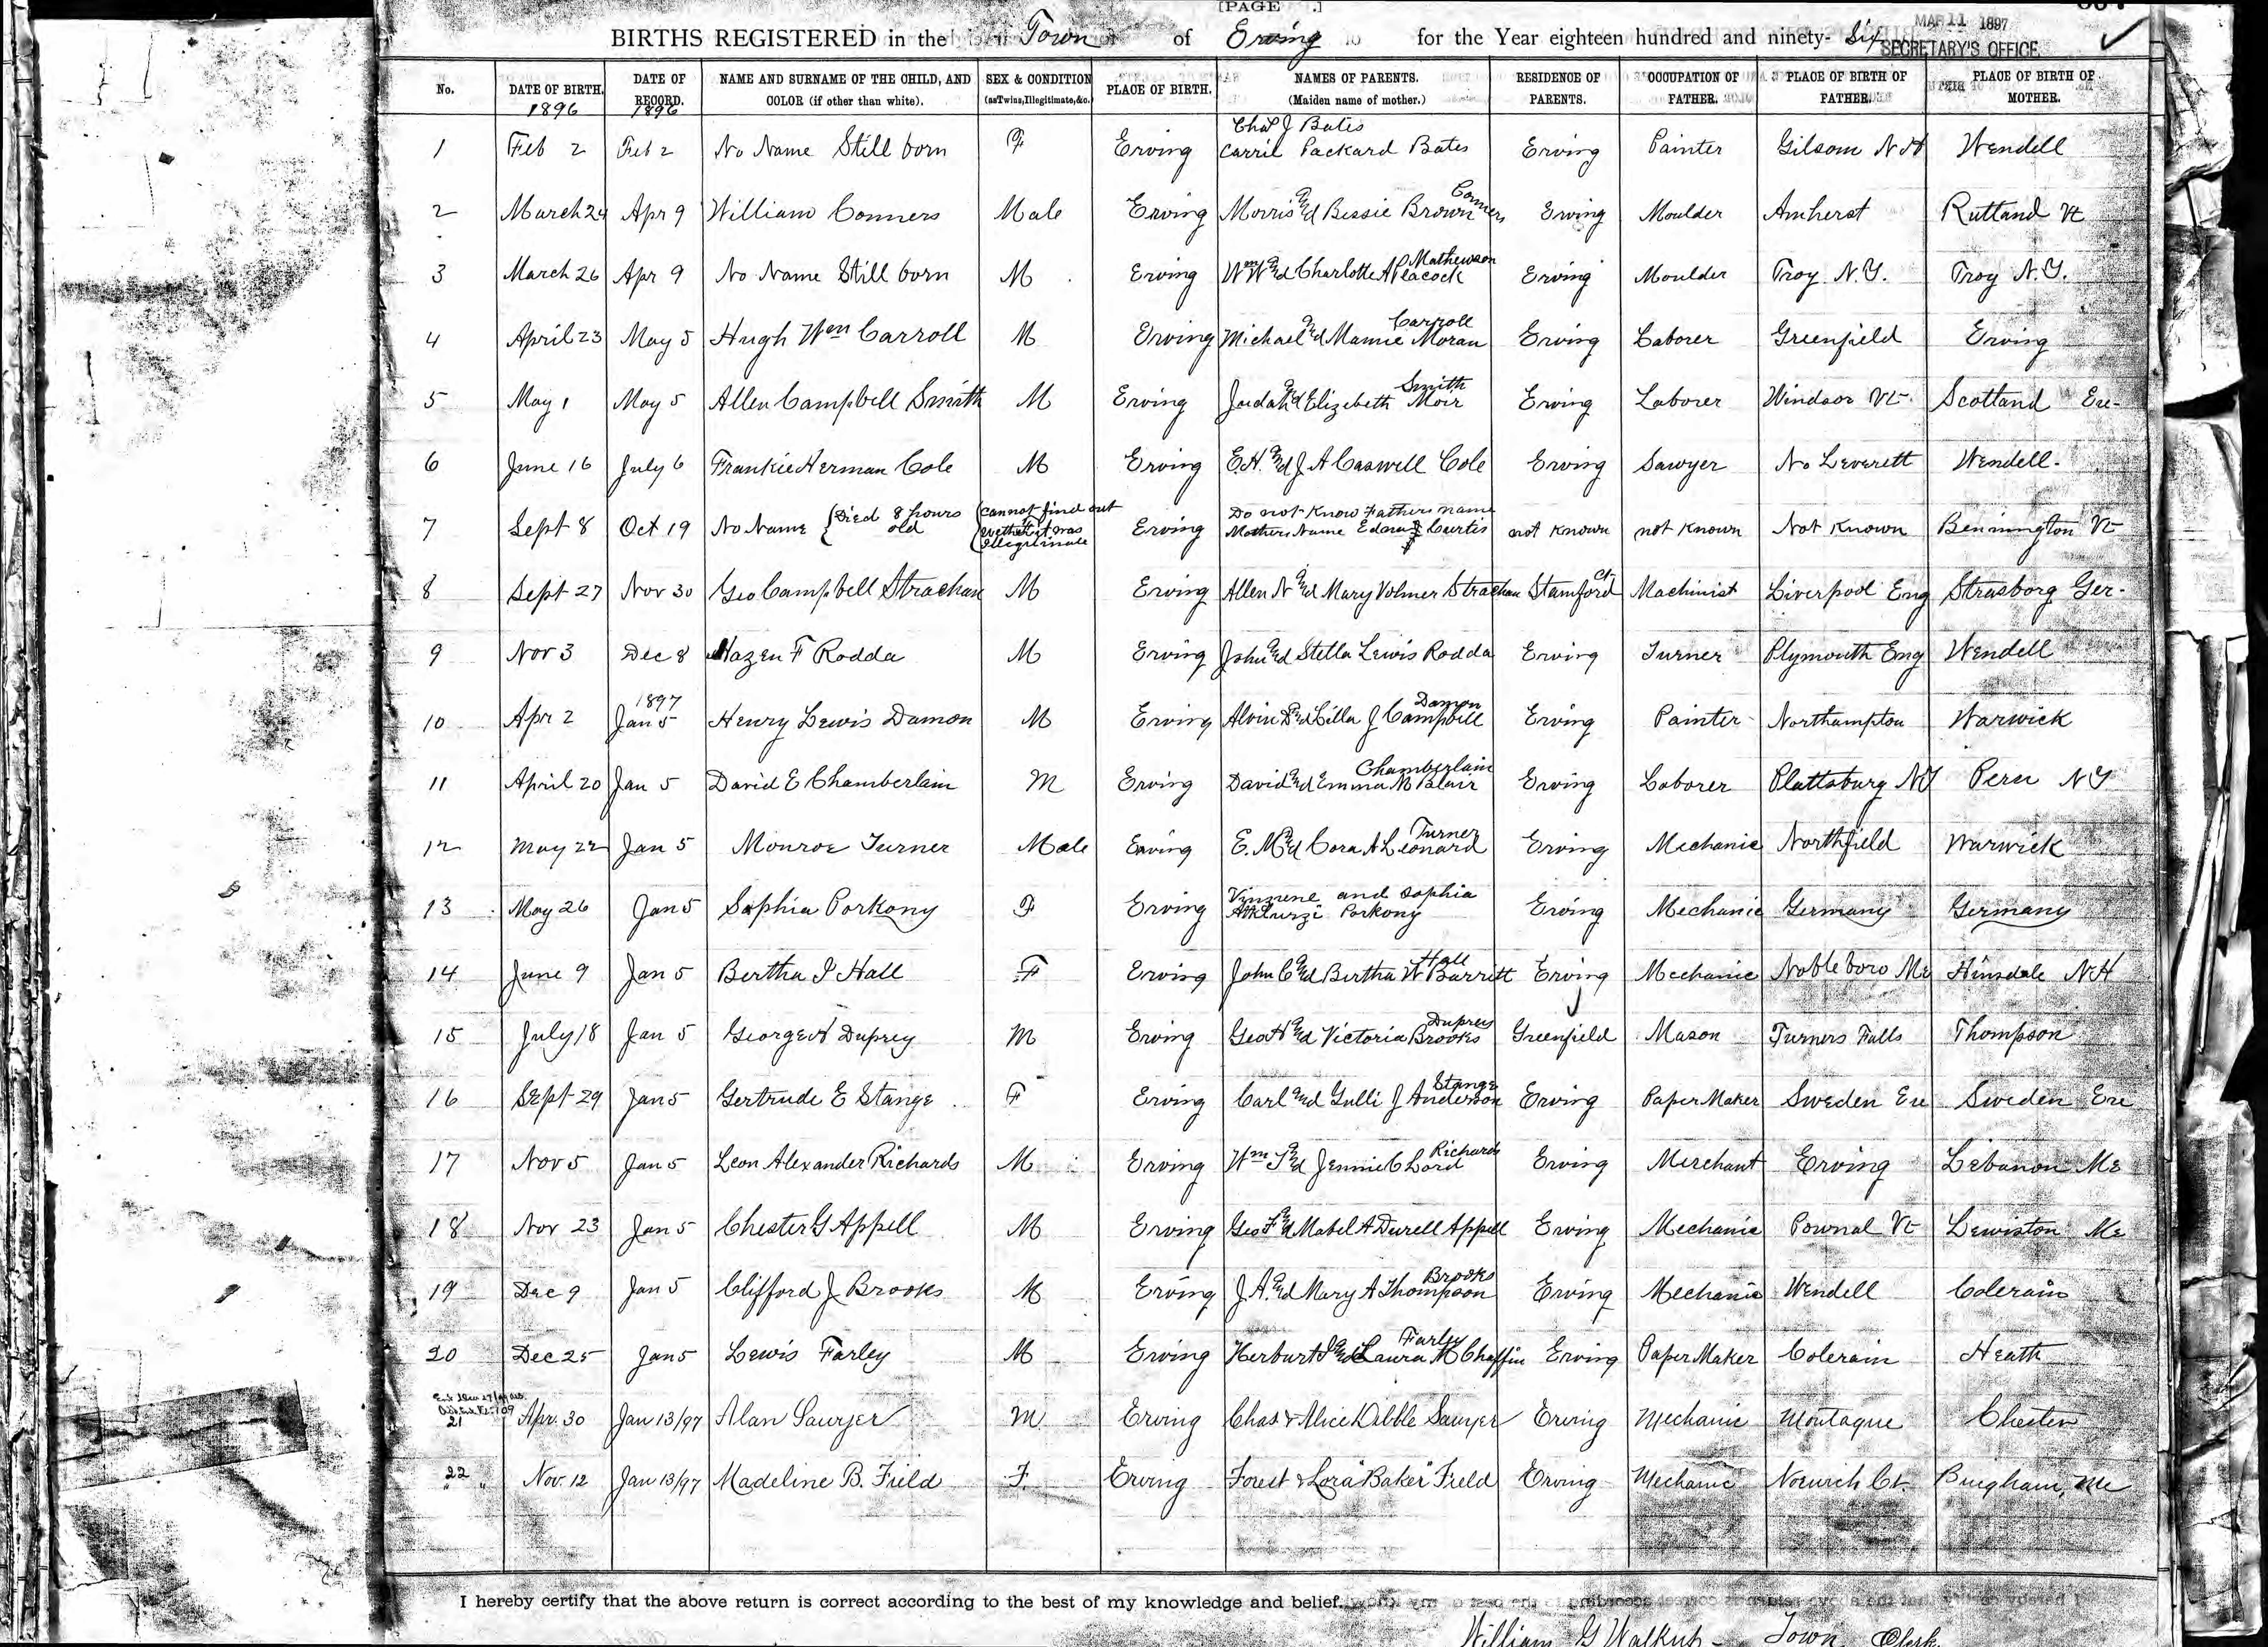 [PAGE .]
MAR 11 1897
SECRETARY'S OFFICE
BIRTHS REGISTERED in the Town of Erving for the Year eighteen hundred and ninety- Six
No. DATE OF BIRTH. 1896 DATE OF RECORD. 1896 NAME AND SURNAME OF THE CHILD, AND COLOR (if other than white). SEX & CONDITION (as Twins, Illegitimate, &c.) PLACE OF BIRTH. NAMES OF PARENTS. (Maiden name of mother.) RESIDENCE OF PARENTS. OCCUPATION OF FATHER. PLACE OF BIRTH OF FATHER. PLACE OF BIRTH OF MOTHER.
1 Feb 2 Feb 2 No Name Still born F Erving Chas J Bates Carril Packard Bates Erving Painter Gilsom N H Wendell
2 March 24 Apr 9 William Conners Male Erving Morris and Bessie Brown Conners Erving Moulder Amherst Rutland Vt
3 March 26 Apr 9 No Name Still born M Erving Wm W and Charlotte A Peacock Mathewson Erving Moulder Troy N.Y. Troy N.Y.
4 April 23 May 5 Hugh Wm Carroll M Erving Michael and Mamie Moran Carroll Erving Laborer Greenfield Erving
5 May 1 May 5 Allen Campbell Smith M Erving Judah and Elizebeth Moir Smith Erving Laborer Windsor Vt Scotland Eu-
6 June 16 July 6 Frankie Herman Cole M Erving E.H. and J A Caswell Cole Erving Sawyer No Leverett Wendell.
7 Sept 8 Oct 19 No Name {Died 8 hours old (cannot find out wether it was illegitimate Erving Do not Know Fathers name Mothers Name Edna Curtis not Known not Known Not Known Bennington Vt
8 Sept 27 Nov 30 Geo Campbell Strachan M Erving Allen N and Mary Volmer Strachan Stamford Ct Machinist Liverpool Eng Strasborg Ger-
9 Nov 3 Dec 8 Hazen F Rodda M Erving John and Stella Lewis Rodda Erving Turner Plymouth Eng Wendell
10 Apr 2 1897 Jan 5 Henry Lewis Damon M Erving Alvin D and Lilla J Campbell Damon Erving Painter Northampton Warwick
11 April 20 Jan 5 David E Chamberlain M Erving David and Emma M Blair Chamberlain Erving Laborer Plattsburg NY Peru NY
12 May 22 Jan 5 Monroe Turner Male Erving E. M and Cora A Leonard Turner Erving Mechanic Northfield Warwick
13 May 26 Jan 5 Sophia Porkony F Erving and Sophia Porkony Erving Mechanic Germany Germany
14 June 9 Jan 5 Bertha I Hall F Erving John C and Bertha W Barritt Hall Erving Mechanic Nobleboro Me Hinsdale NH
15 July 18 Jan 5 George H Duprey M Erving Geo H and Victoria Brooks Duprey Greenfield Mason Turners Falls Thompson
16 Sept 29 Jan 5 Gertrude E Stange F Erving Carl and Gulli J Anderson Stange Erving Paper Maker Sweden Eu Sweden Eu
17 Nov 5 Jan 5 Leon Alexander Richards M Erving Wm T and Jennie C Lord Richards Erving Merchant Erving Lebanon Me
18 Nov 23 Jan 5 Chester G Appell M Erving Geo F and Mabel A Durell Appell Erving Mechanic Pownal Vt Lewiston Me
19 Dec 9 Jan 5 Clifford J Brooks M Erving J A. and Mary A Thompson Brooks Erving Mechanic Wendell Colerain
20 Dec 25 Jan 5 Lewis Farley M Erving Herburt I and Laura M Chaffin Farley Erving Paper Maker Colerain Heath
21 Apr. 30 Jan 13/97 Alan Sawyer M Erving Chas & Alice Dibble Sawyer Erving Mechanic Montague Chester
22 Nov. 12 Jan 13/97 Madeline B. Field F. Erving Forest & Lora "Baker" Field Erving Mechanic Norwich Ct. Bingham, Me
I hereby certify that the above return is correct according to the best of my knowledge and belief.
William G Walkup Town Clerk